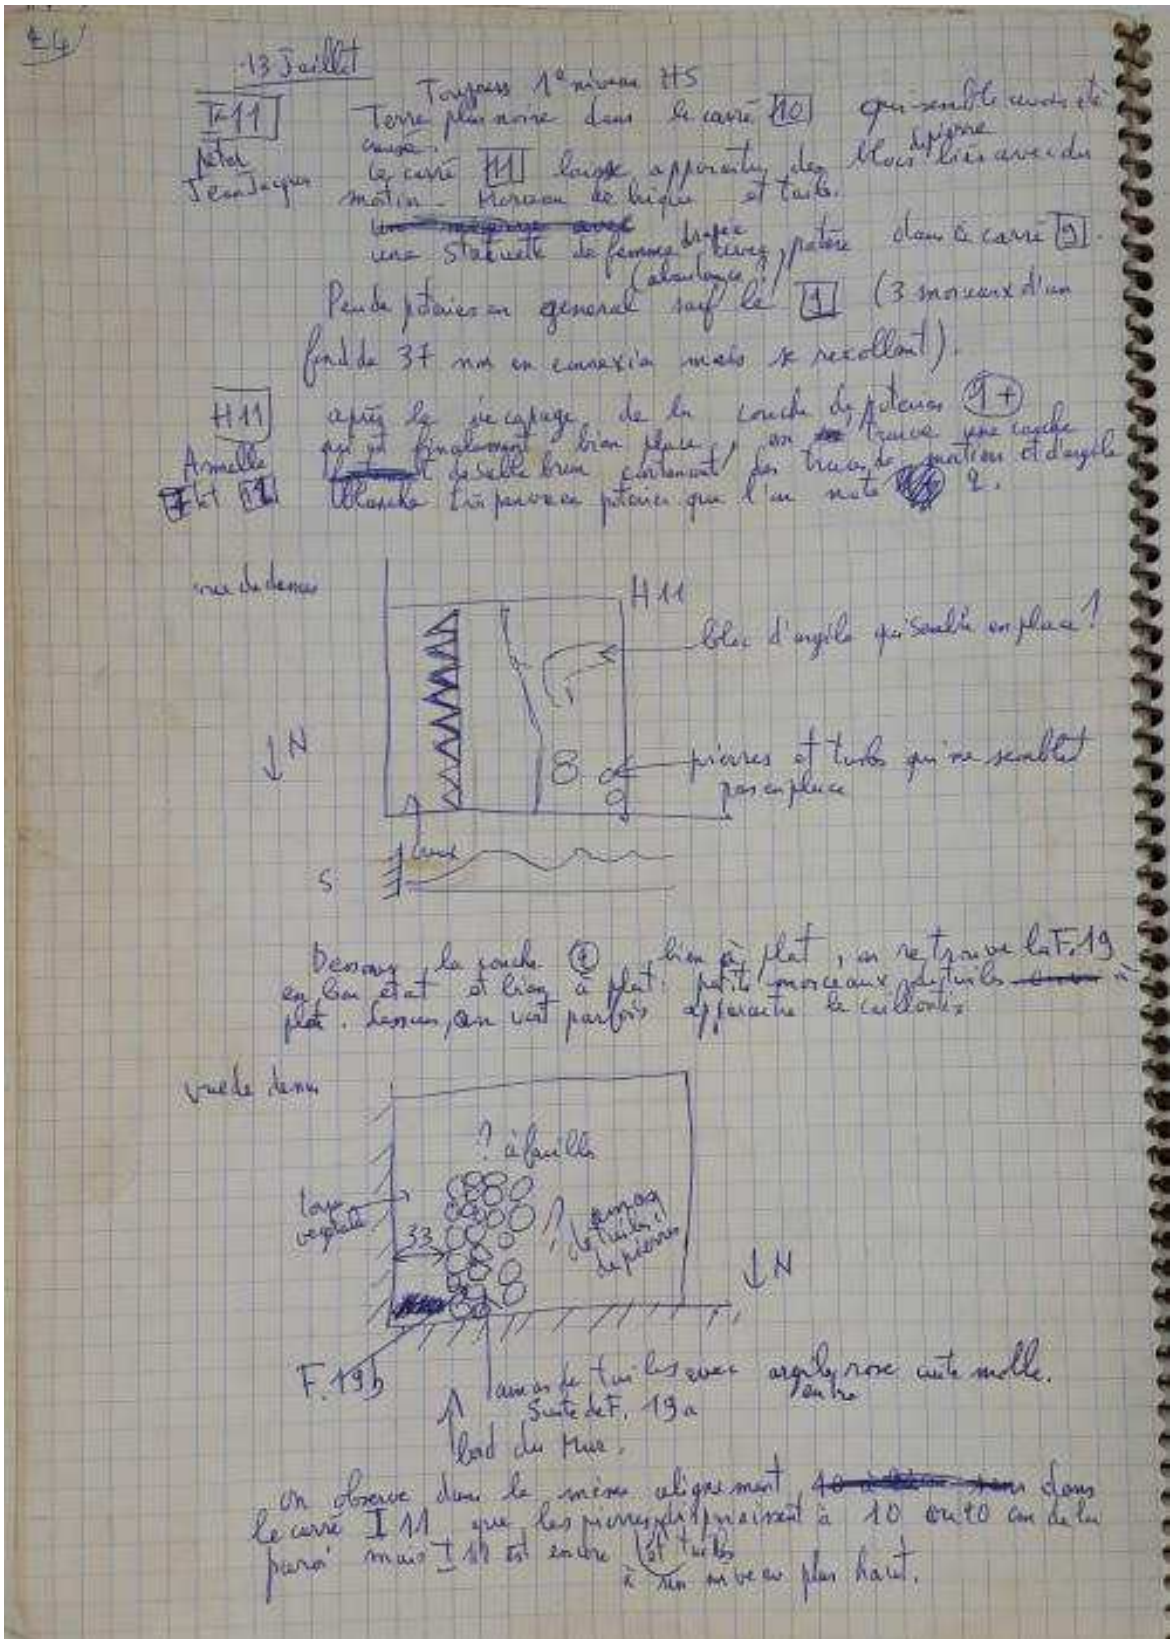 24
13 Juillet
Toujours 1° niveau H5
I-11
Terre plus noire dans le carré 10 qui semble avoir été
creusé.
peter
Jean Jacques
Le carré 11 laisse apparaitre des blocs de pierre liés avec du
mortier. Morceau de brique et tuile.
une statuette de femme drapée, patère dans le carré 9.
(abondance ?)
Peu de poteries en general sauf le 1 (3 morceaux d'un
fond de 37 mm en connexion mais se recollant).
H11
après le décapage de la couche de poteries 1+
Armelle
qui est finalement bien place, on trouve une couche
de sable brun contenant des traces de mortier et d'argile
blanche très pauvre en poteries que l'on note 2.
vue de dessus
H11
bloc d'argile qui semble en place ?
N
pierres et tuiles qui ne semblent
pas en place
creux
S
Dessous la couche 2 bien à plat, on retrouve la F.19
en bon état et bien à plat : petits morceaux de tuiles à
plat. dessous, on voit parfois apparaitre le cailloutis
vue de dessus
? à fouiller
terre
vegetale
33
? amas
de tuiles,
de pierres
N
F.19b
amas de tuiles avec argile rose cuite molle.
entre
Suite de F. 19a
bord du Mur.
on observe dans le même alignement, dans
le carré I 11 que les pierres et tuiles disparaissent à 10 ou 20 cm de la
paroi mais I 11 est encore
à un niveau plus haut.